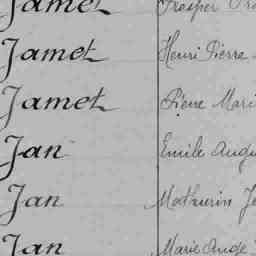 Jamet Prosper
Jamet Henri Pierre
Jamet Pierre Mari
Jan Emile Augu
Jan Mathurin Je
Jan Marie Ange